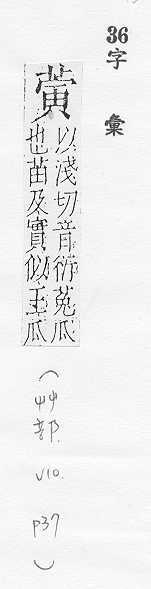 36字彙
以淺切音衍菟瓜
也苗及實似土瓜
(艸部. V10. P37)